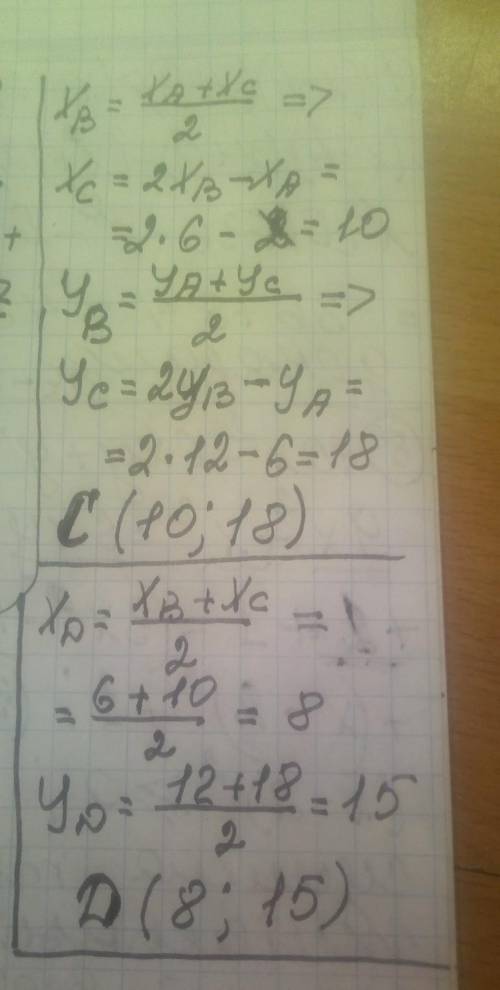 X_B = (X_A + X_C)/2 =>
X_C = 2X_B - X_A =
= 2·6 - 2 = 10
У_B = (У_A + У_C)/2 =>
У_C = 2У_B - У_A =
= 2·12 - 6 = 18
C (10; 18)
X_D = (X_B + X_C)/2 =
= (6 + 10)/2 = 8
У_D = (12 + 18)/2 = 15
D (8; 15)